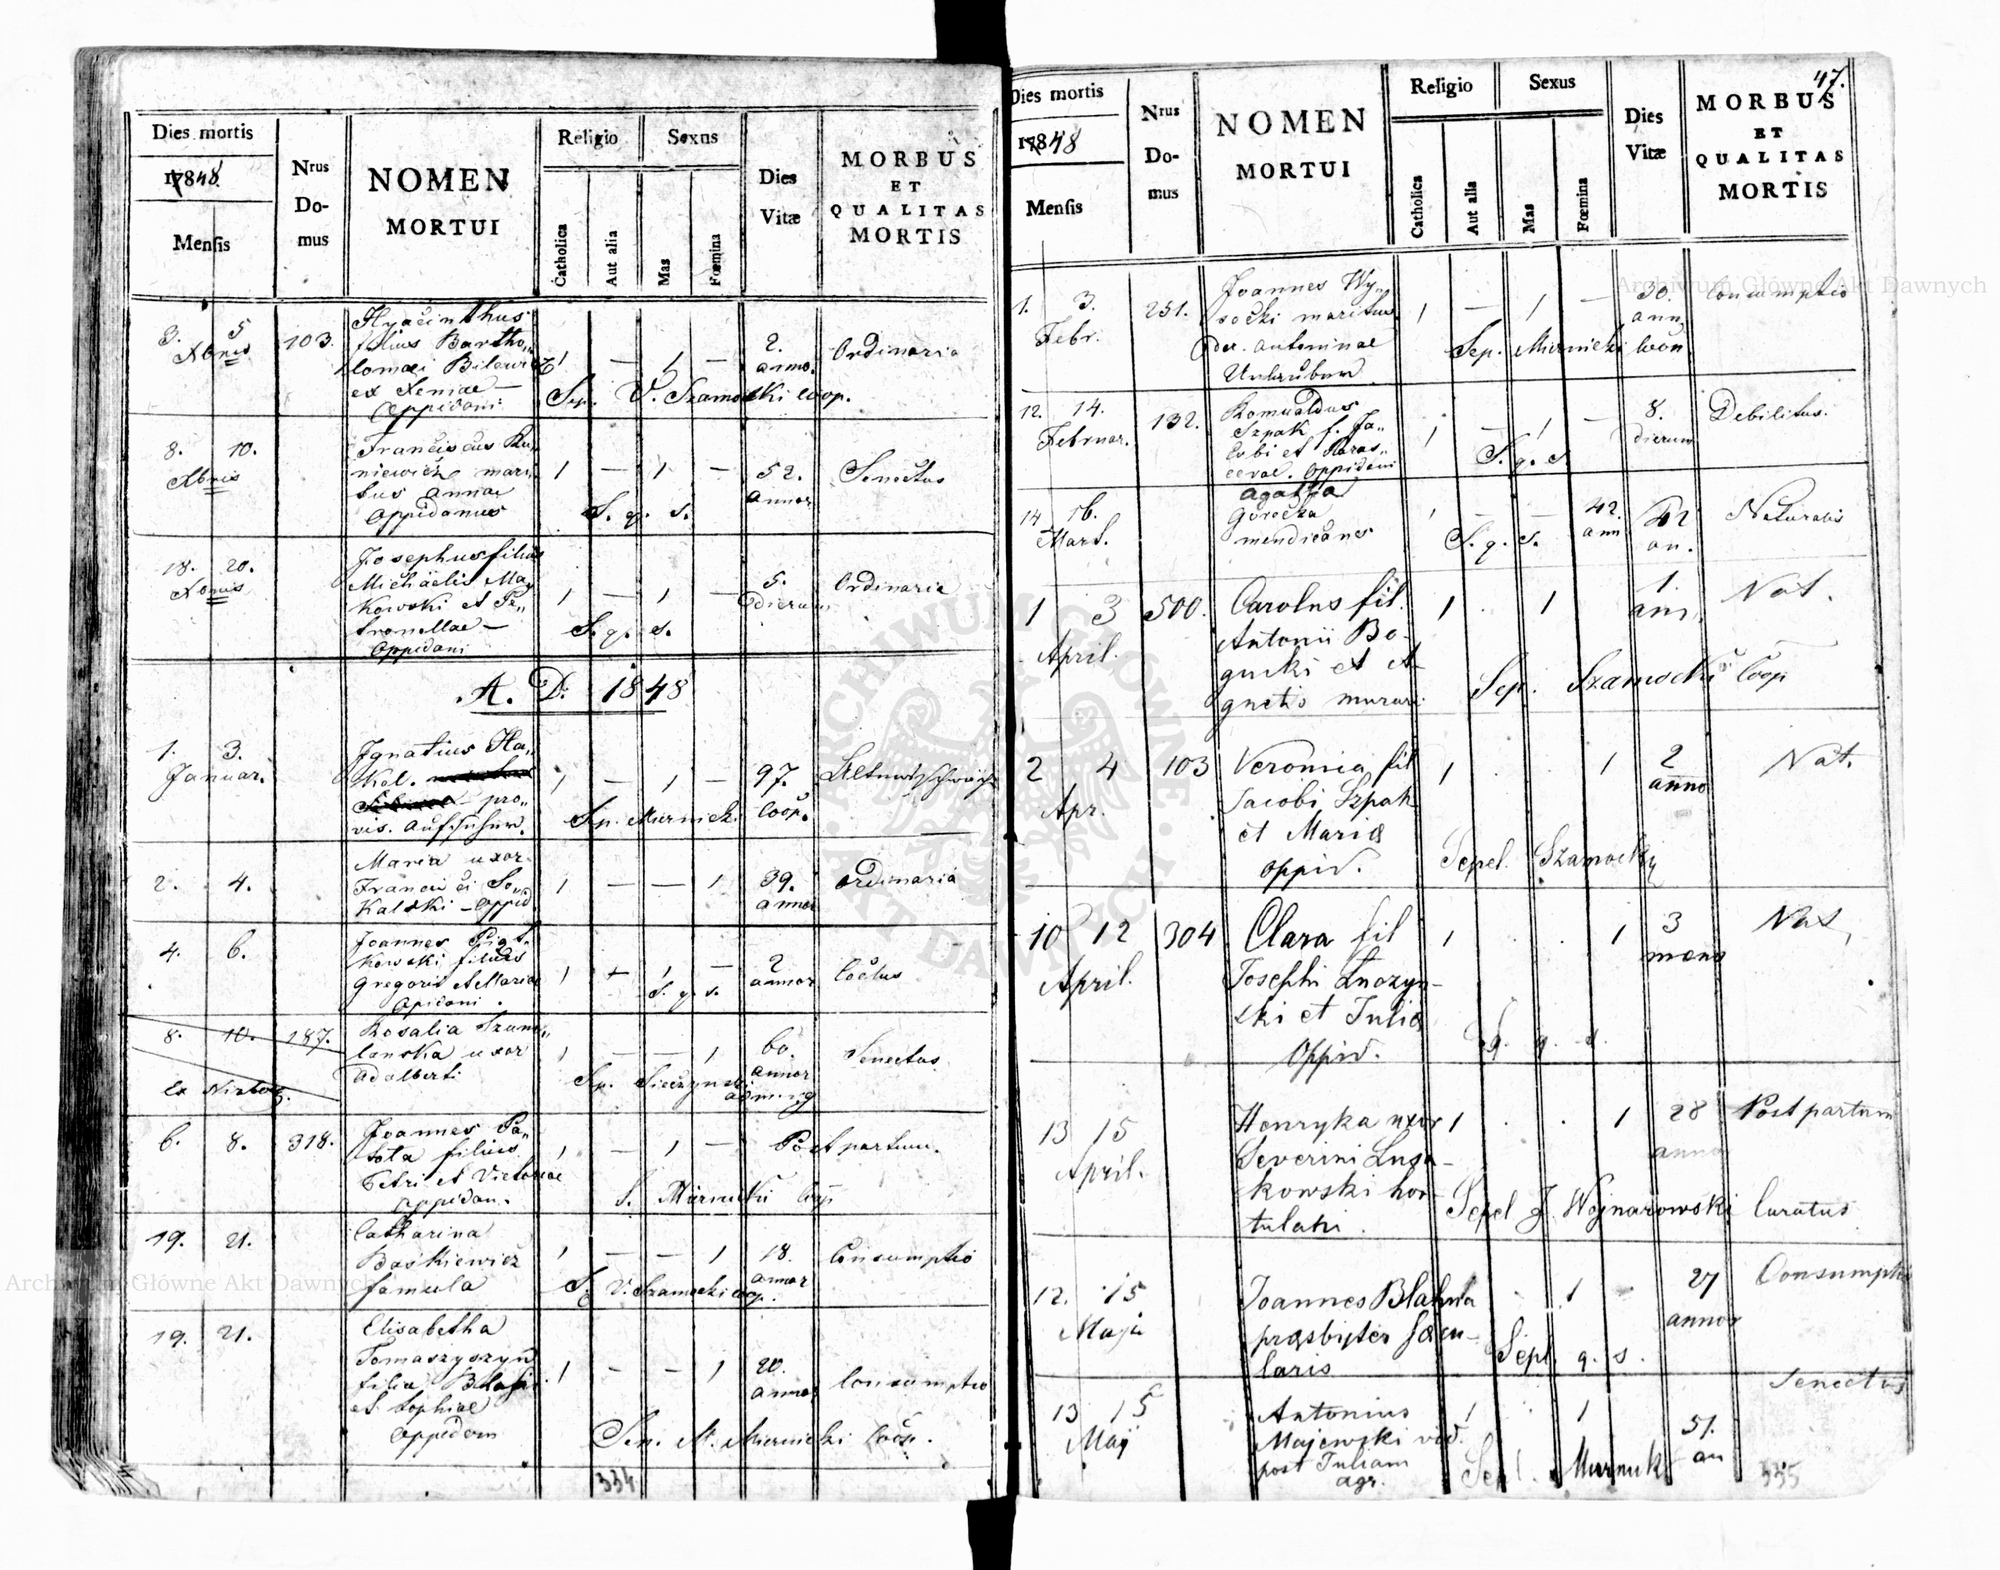 Dies mortis
17848.
Mensis
Nrus
Do-
mus
NOMEN
MORTUI
Religio
Catholica
Aut alia
Sexus
Mas
Fœmina
Dies
Vitæ
MORBUS
ET
QUALITAS
MORTIS
3. 5
Xbris
103.
Hyacinthus
filius Bartho„
lomæi Bilewicz
ex Xeniae —
Oppidani
1 — 1 —
2.
annor.
Ordinaria
Sep. V. Szamocki coop.
8. 10.
Xbris
Franciscus Ku„
niewicz mari„
tus Annae
Oppidanus
1 — 1 —
52.
annor
Senectus
S. q. s.
18. 20.
Xbris
Josephus filius
Michaelis May
Kowski et Pe„
tronellae —
Oppidani
1 — 1 —
5.
dierum
Ordinaria
S. q. s.
A. D. 1848
1. 3.
Januar.
Ignatius Ha„
kel.
pro„
vis.
1 — 1 —
97.
Altersschwäche
Sep. Miernicki Coop.
2. 4.
Maria uxor
Francisci So„
Kalski — Oppid.
1 — — 1
39.
annor
Ordinaria
4. 6.
Joannes Piąt„
Kowski filius
Gregorii et Mariae
Opidani.
1 + 1 —
2
annor
S. q. s.
8. 10.
187.
Rosalia Szum„
lanska uxor
Adalberti
1 — — 1
60.
annor
Senectus
ex
6. 8.
318.
Joannes Pa„
tota filius
Petri et Victoriae
Oppidan.
1 — 1 —
Post partum.
S. Miernicki Coop
19. 21.
Catharina
Baskiewicz
famula
1 — — 1
18.
annor
Consumptio
S. V. Szamocki coop.
19. 21.
Elisabetha
Tomaszyszyn
filia Blasii
et Sophiae
Oppidan
1 — — 1
20.
annor
Consumptio
Sep. M. Miernicki Coop.
334
47.
Dies mortis
17848
Mensis
Nrus
Do-
mus
NOMEN
MORTUI
Religio
Catholica
Aut alia
Sexus
Mas
Fœmina
Dies
Vitæ
MORBUS
ET
QUALITAS
MORTIS
1. 3.
Febr.
251.
Joannes Wy„
socki maritus
Antoninae
1 — 1 —
30.
ann
Consumptio
Sep. Miernicki Coop
12. 14.
Februar.
132.
Romualdus
Szpak f. Ja„
cobi et Paras„
cevae. Oppidani
1 — 1 —
8.
dierum
Debilitas.
S. q. s.
14 16.
Mart.
Agatha
Górecka
mendicans
1 — —
42.
ann
42
an.
Naturalis
S. q. s.
1 3
April.
500.
Carolus fil.
Antonii Bo-
gucki et A-
gnetis murari
1 . 1
1.
ani,
Nat.
Sep. Szamocki Coop
2 4
Apr.
103
Veronia fil
Jacobi Szpak
et Mariæ
oppid.
1 . . 1
2
anno
Nat.
Sepel. Szamocky
10 12
April.
304
Clara fil
Josephi Luczyn-
ski et Juliæ
Oppid.
1 . . 1
3
mens
Nat,
q. s.
13 15
April.
Henryka uxor
Severini Lusa-
kowski hor-
tulani.
1 . . 1
28
anno
Post partum
Sepel J. Wojnarowski Curatus
12. 15
Maji
Joannes Blahna
præsbyter sæcu-
laris
1
27
annor
Consumptio
Sepl. q. s.
13 15
Maij
Antonius
Majewski vid.
post Juliam
agr.
1 1
51.
an
Senectus
Sepl. Miernicki
335
Archiwum Główne Akt Dawnych
Archiwum Główne Akt Dawnych
ARCHIWUM GŁÓWNE
AKT DAWNYCH